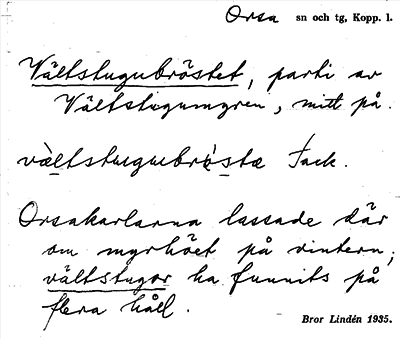 Orsa sn och tg, Kopp. l.
Vältstugubröstet, parti av
Vältstugumyren, mitt på.
vä̀ltstuguubrö̀sta Jack.
Orsakarlarna lassade där
om myrhöet på vintern;
vältstugor ha funnits på
flera håll.
Bror Lindén 1935.